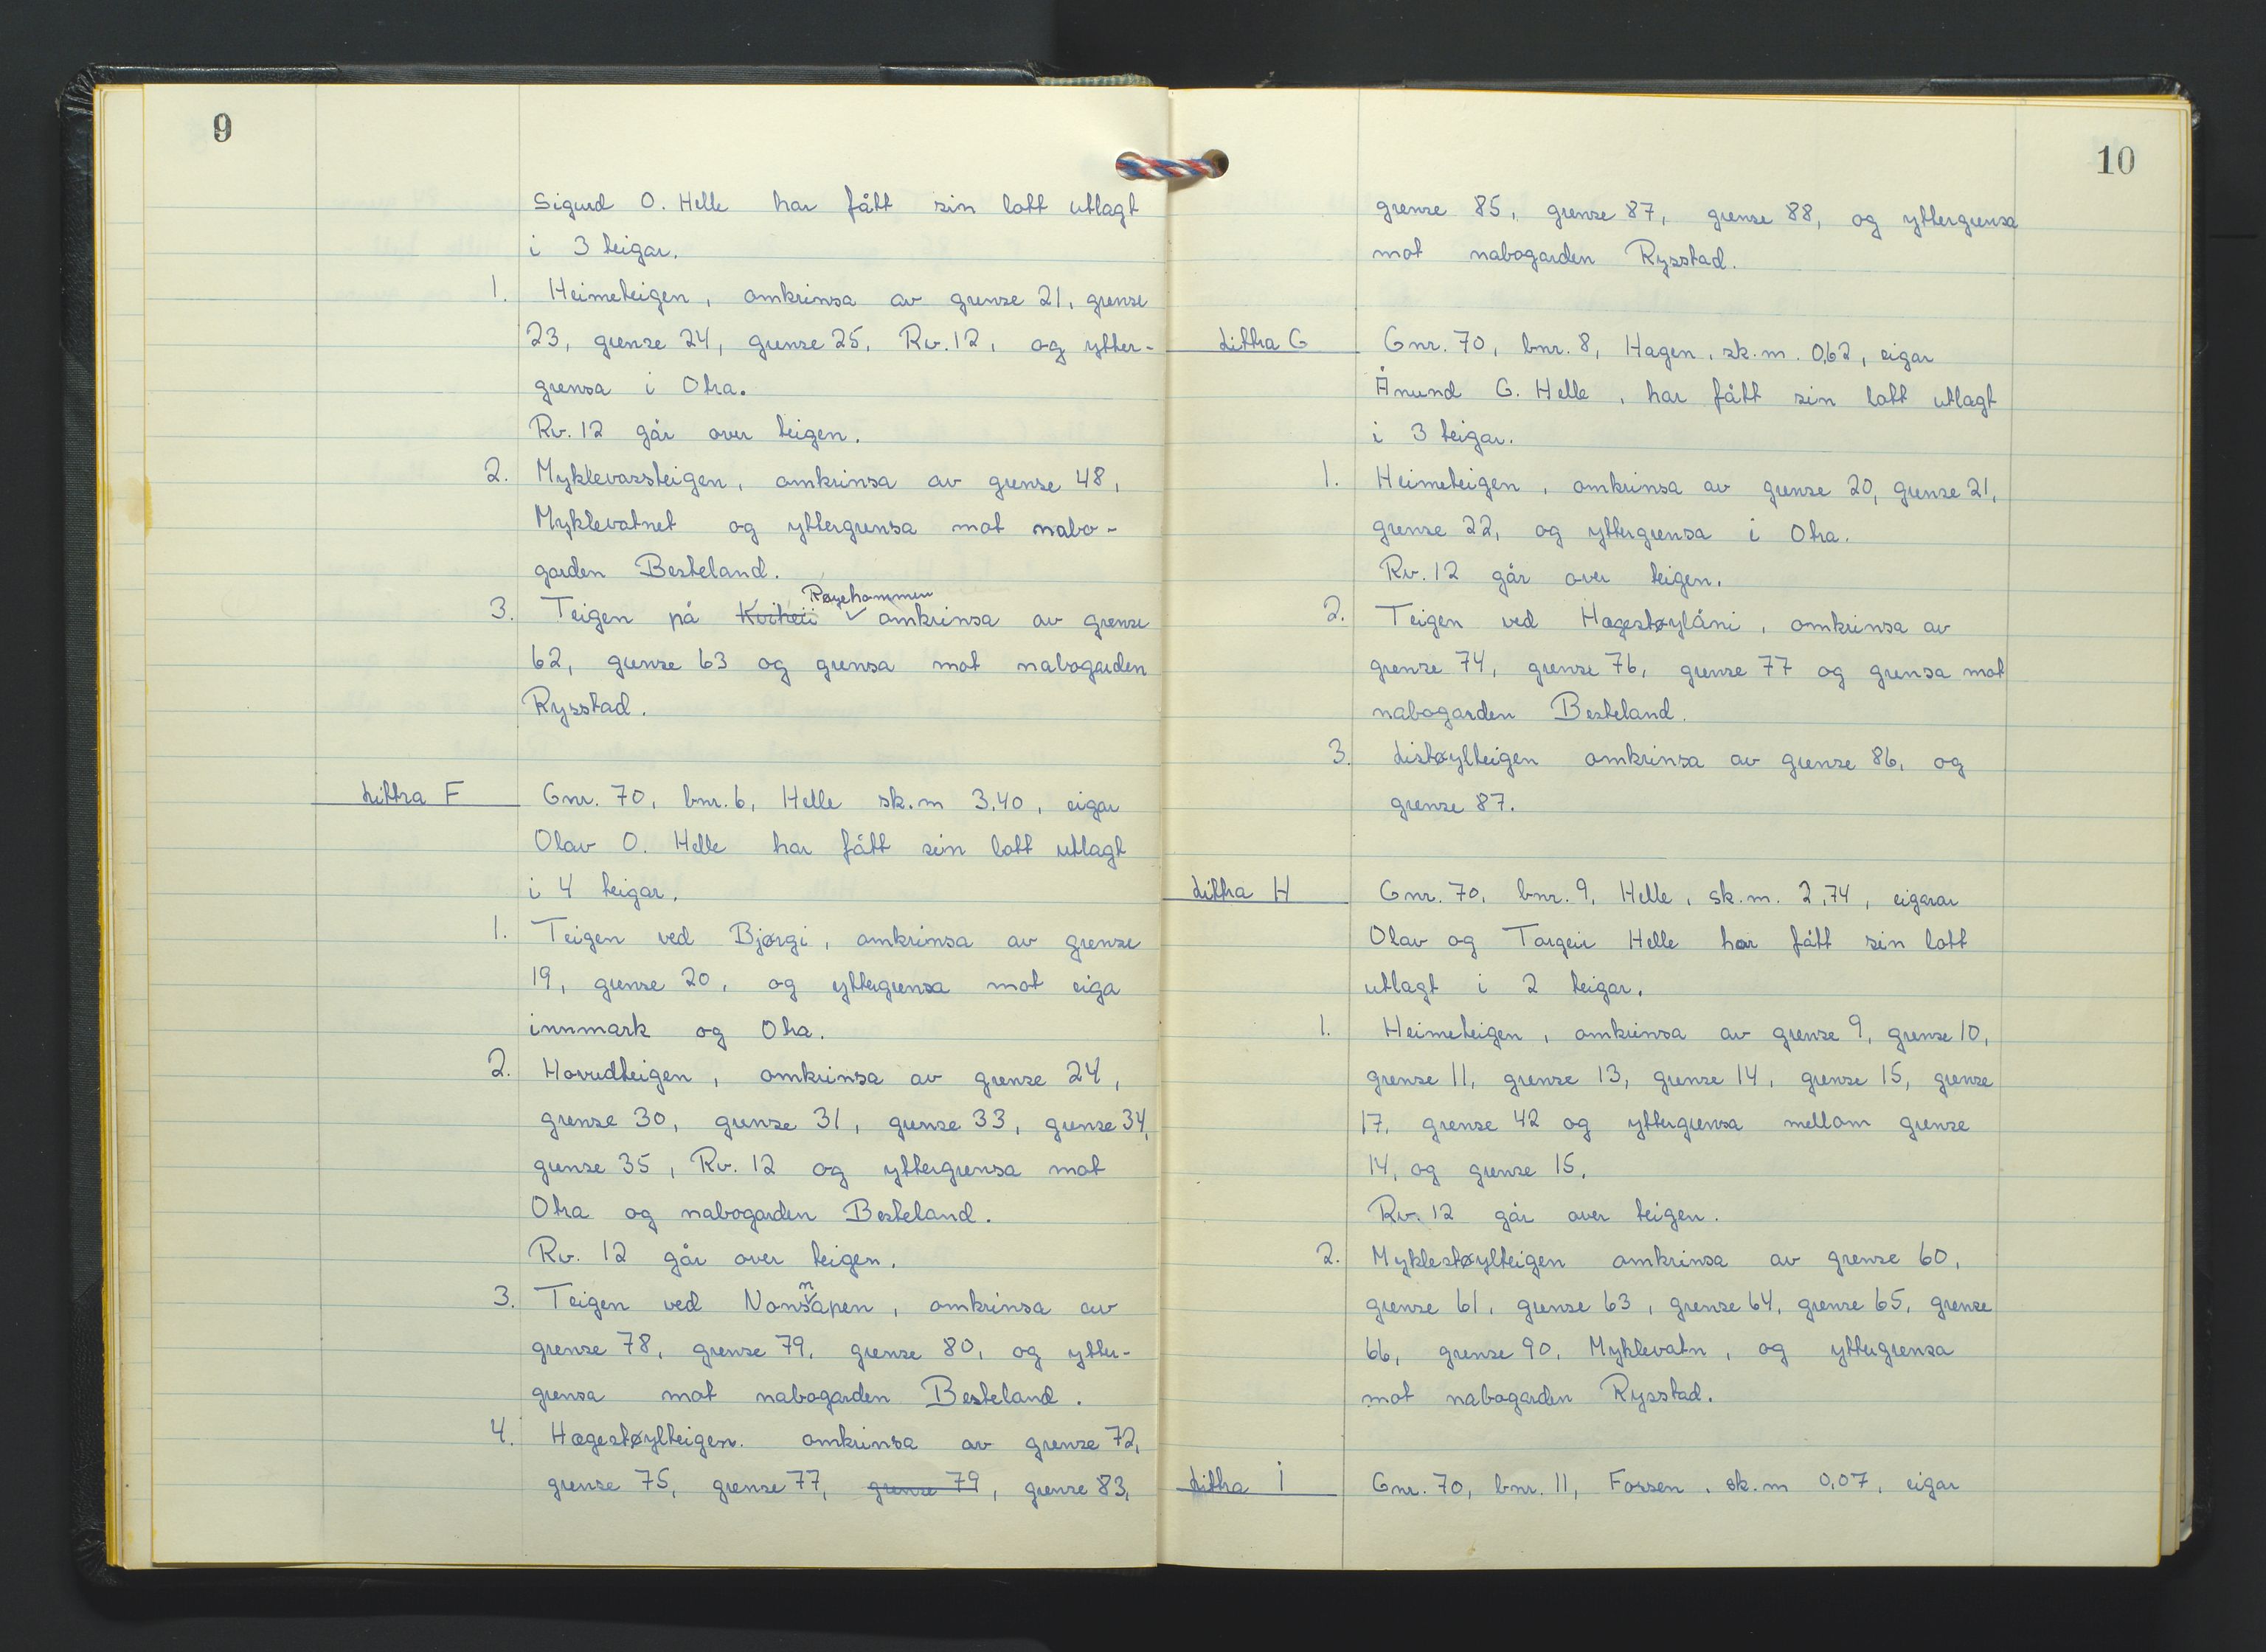 9
Sigurd O. Helle har fått sin lott utlagt
i 3 teigar.
1. Heimeteigen, omkrinsa av grense 21, grense
23, grense 24, grense 25, Rv. 12, og ytter-
grensa i Otra.
Rv. 12 går over teigen.
2. Myklevassteigen, omkrinsa av grense 48,
Myklevatnet og yttergrensa mot nabo-
garden Besteland.
Røyehommen
3. Teigen på Kviheii omkrinsa av grense
62, grense 63 og grensa mot nabogarden
Rysstad.
Littra F Gnr. 70, bnr. 6, Helle sk.m 3,40, eigar
Olav O. Helle har fått sin lott utlagt
i 4 teigar.
1. Teigen ved Bjørgi, omkrinsa av grense
19, grense 20, og yttergrensa mot eiga
innmark og Otra.
2. Hovudteigen, omkrinsa av grense 24,
grense 30, grense 31, grense 33, grense 34,
grense 35, Rv. 12 og yttergrensa mot
Otra og nabogarden Besteland.
Rv. 12 går over teigen.
3. Teigen ved Nonsnapen, omkrinsa av
grense 78, grense 79, grense 80, og ytter-
grensa mot nabogarden Besteland.
4. Hagestøylteigen. omkrinsa av grense 72,
grense 75, grense 77, grense 79, grense 83,
10
grense 85, grense 87, grense 88, og yttergrensa
mot nabogarden Rysstad.
Littra G Gnr. 70, bnr. 8, Hagen, sk.m. 0,62, eigar
Ånund G. Helle, har fått sin lott utlagt
i 3 teigar.
1. Heimeteigen, omkrinsa av grense 20, grense 21,
grense 22, og yttergrensa i Otra.
Rv. 12 går over teigen.
2. Teigen ved Hagestøylåni, omkrinsa av
grense 74, grense 76, grense 77 og grensa mot
nabogarden Besteland.
3. Listøylteigen omkrinsa av grense 86, og
grense 87.
Littra H Gnr. 70, bnr. 9, Helle, sk.m. 2,74, eigarar
Olav og Targeir Helle har fått sin lott
utlagt i 2 teigar.
1. Heimeteigen, omkrinsa av grense 9, grense 10,
grense 11, grense 13, grense 14, grense 15, grense
17, grense 42 og yttergrensa mellom grense
14, og grense 15.
Rv. 12 går over teigen.
2. Myklestøylteigen omkrinsa av grense 60,
grense 61, grense 63, grense 64, grense 65, grense
66, grense 90, Myklevatn, og yttergrensa
mot nabogarden Rysstad.
Littra i Gnr. 70, bnr. 11, Forsen, sk.m 0,07, eigar